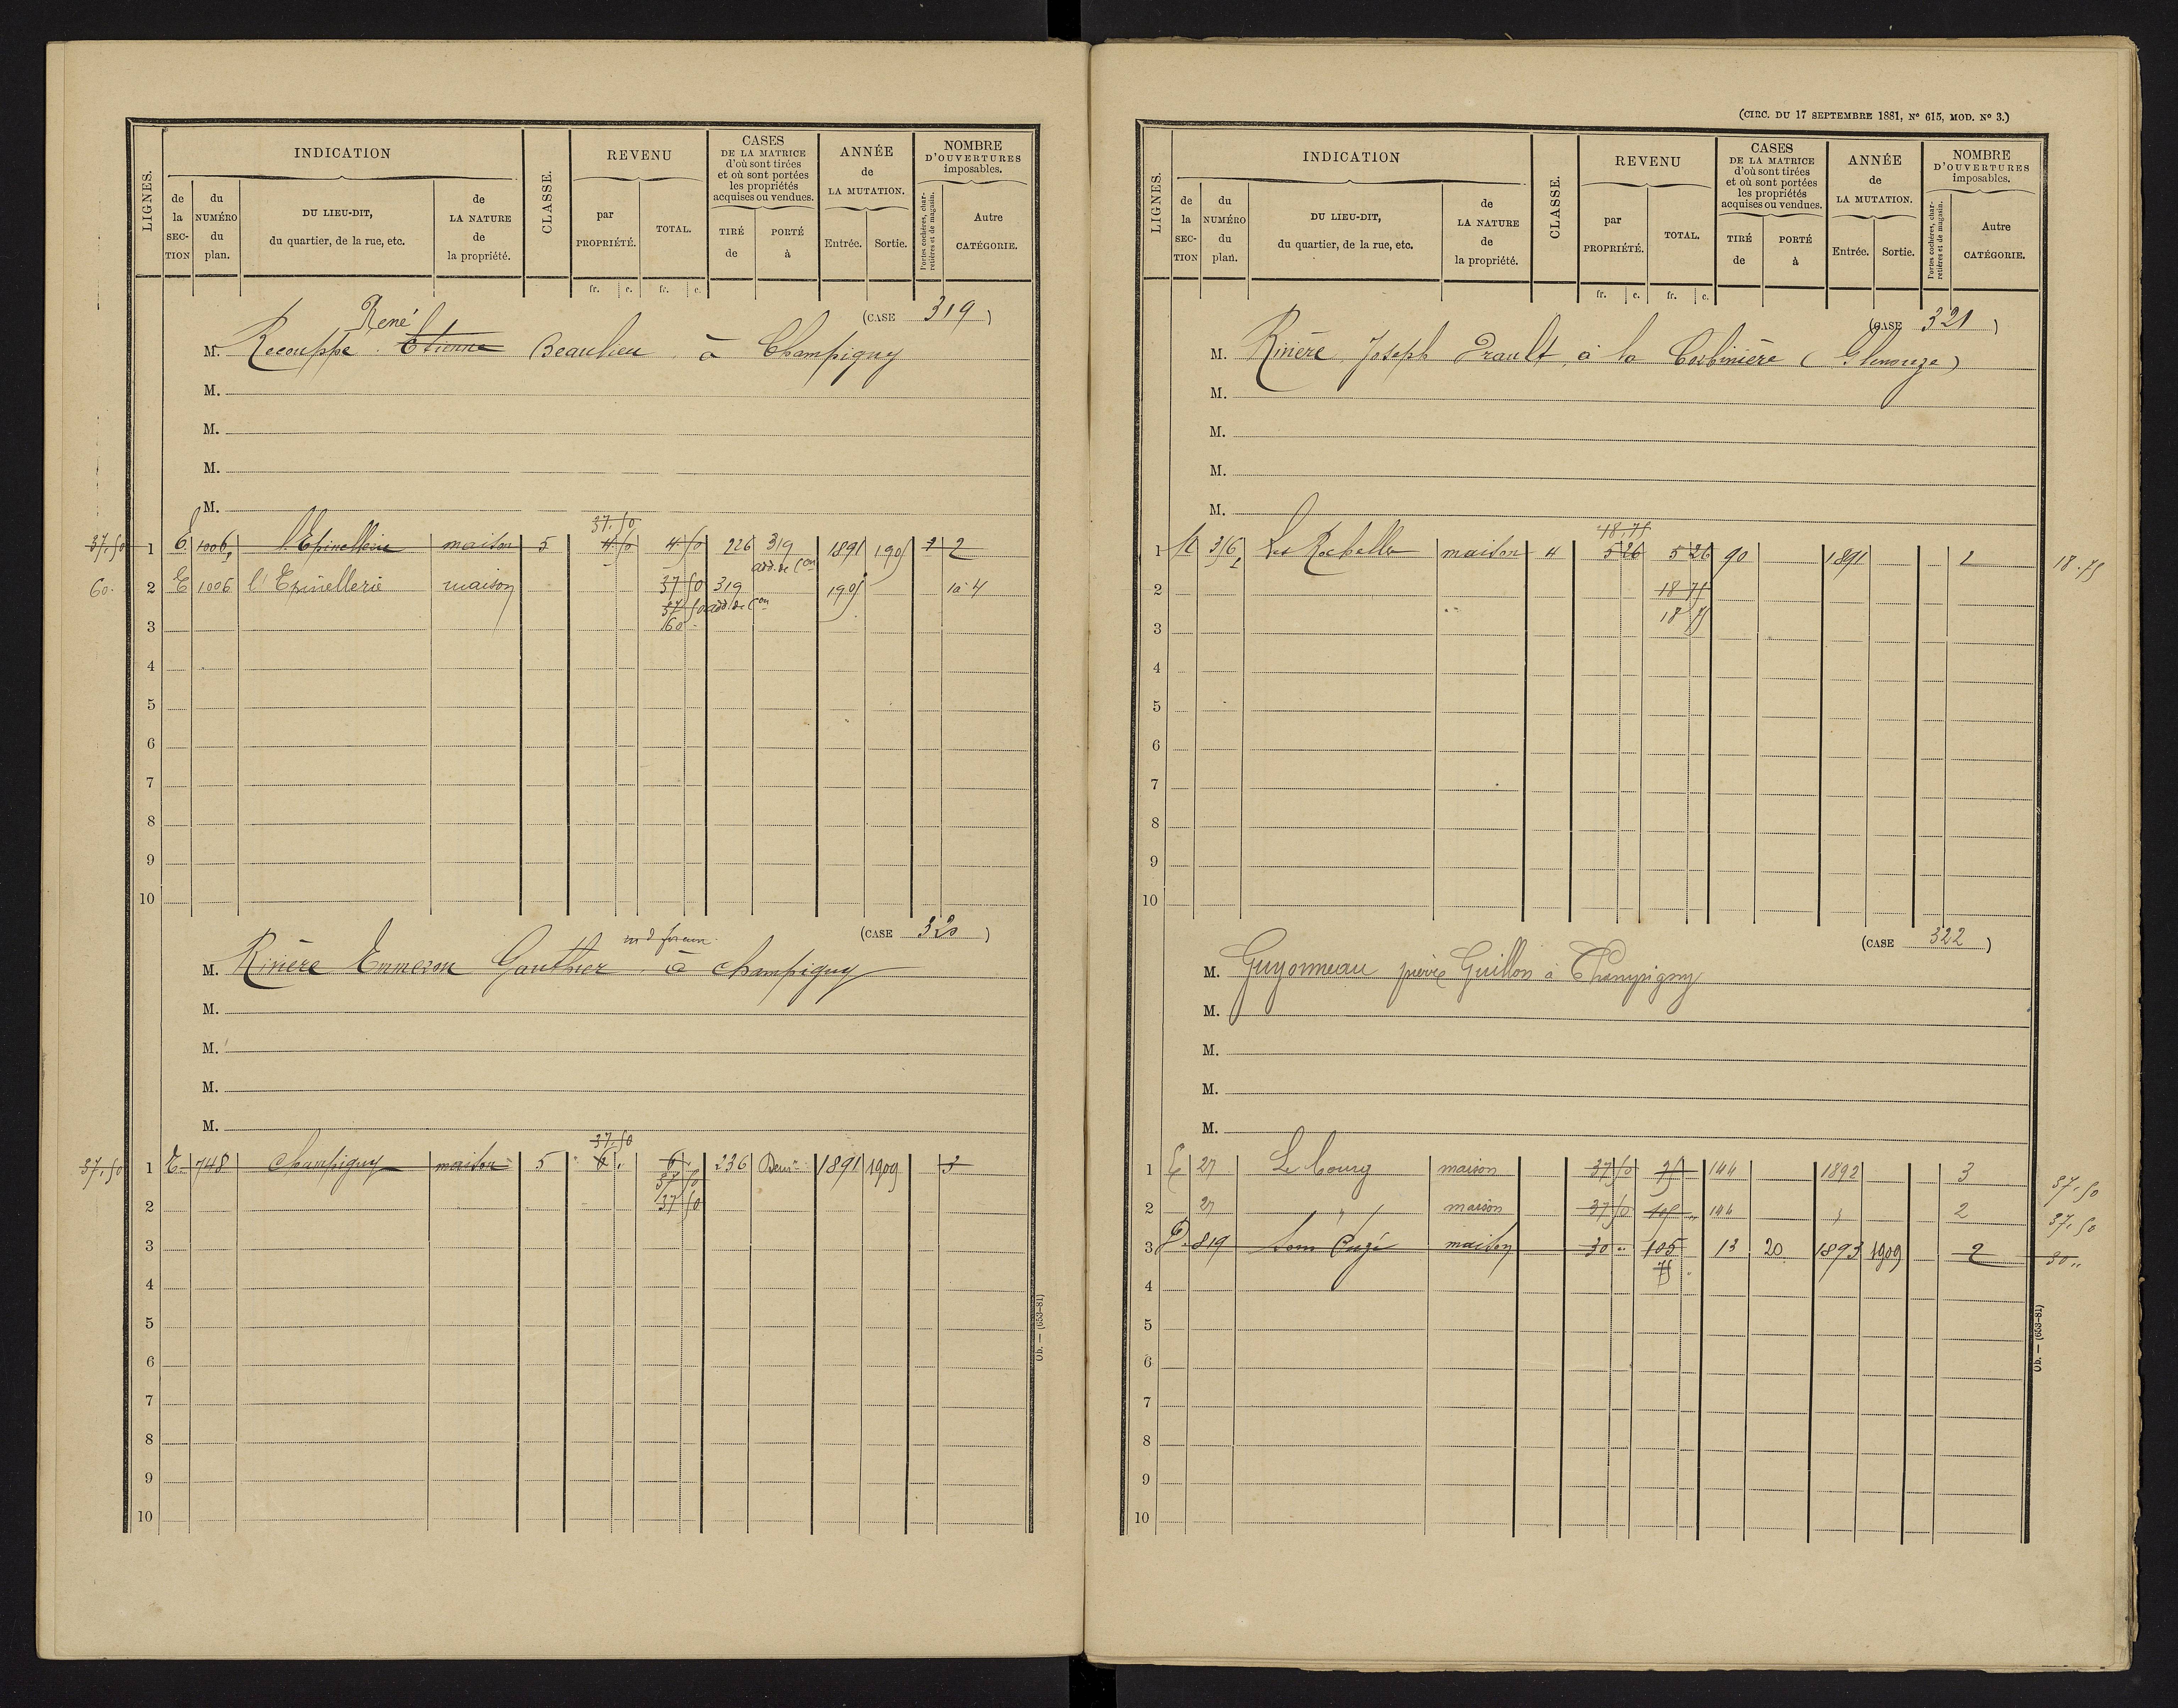 LIGNES.
INDICATION
de la SECTION
du NUMÉRO du plan.
DU LIEU-DIT, du quartier, de la rue, etc.
de LA NATURE de la propriété.
CLASSE.
REVENU
par PROPRIÉTÉ.
TOTAL.
fr. c. fr. c.
CASES DE LA MATRICE d'où sont tirées et où sont portées les propriétés acquises ou vendues.
TIRÉ de
PORTÉ à
ANNÉE de LA MUTATION.
Entrée. Sortie.
NOMBRE D'OUVERTURES imposables.
Portes cochères, charretières et de magasin.
Autre CATÉGORIE.
(CASE 319)
René
M. Recouppé Etienne Beaulieu à Champigny
M.
M.
M.
M.
37.50
37.50 1 E 1006 l'Epinellerie maison 5 4 50 4 50 226 319 1891 1905 1 2
add. de Con
60. 2 E 1006 l'Epinellerie maison 37 50 319 1905 1 à 4
37 50 add. de Con
3 60
4
5
6
7
8
9
10
(CASE 320)
md forain
M. Rivière Emmeron Gauthier à Champigny
M.
M.
M.
M.
37.50
37.50 1 E 748 Champigny maison 5 6 6 236 Dem 1891 1909 3
37 50
2 37 50
3
4
5
6
7
8
9
10
Ob. — (653-81)
(CIRC. DU 17 SEPTEMBRE 1881, No 615, MOD. No 3.)
LIGNES.
INDICATION
de la SECTION
du NUMÉRO du plan.
DU LIEU-DIT, du quartier, de la rue, etc.
de LA NATURE de la propriété.
CLASSE.
REVENU
par PROPRIÉTÉ.
TOTAL.
fr. c. fr. c.
CASES DE LA MATRICE d'où sont tirées et où sont portées les propriétés acquises ou vendues.
TIRÉ de
PORTÉ à
ANNÉE de LA MUTATION.
Entrée. Sortie.
NOMBRE D'OUVERTURES imposables.
Portes cochères, charretières et de magasin.
Autre CATÉGORIE.
(CASE 321)
M. Rivière Joseph Erault, à la Corbinière (Glenouze)
M.
M.
M.
M.
18.75
1 316 Les Rochelles maison 4 5 26 5 26 90 1891 2 18.75
2 18 75
3 18 75
4
5
6
7
8
9
10
(CASE 322)
M. Guyonneau pierre Guillon à Champigny
M.
M.
M.
M.
1 E 27 Le bourg maison 37 50 75 144 1892 3 37.50
2 27 " maison 37 50 105 144 2 37.50
3 D 819 maison 30 105 13 20 1893 1909 2 30
75
4
5
6
7
8
9
10
Ob. — (653-81)